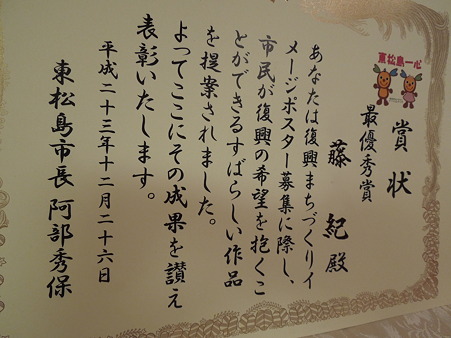 東松島一心
賞状
最優秀賞
藤 紀 殿
あなたは復興まちづくりイ
メージポスター募集に際し、
市民が復興の希望を抱くこ
とができるすばらしい作品
を提案されました。
よってここにその成果を讃え
表彰いたします。
平成二十三年十二月二十六日
東松島市長 阿部秀保